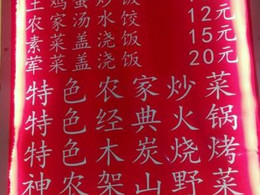 土鸡蛋炒饭
农家汤水饺 12元
素菜盖浇饭 15元
荤菜盖浇饭 20元
特色农家炒菜
特色经典火锅
特色木炭烧烤
神农架山野菜